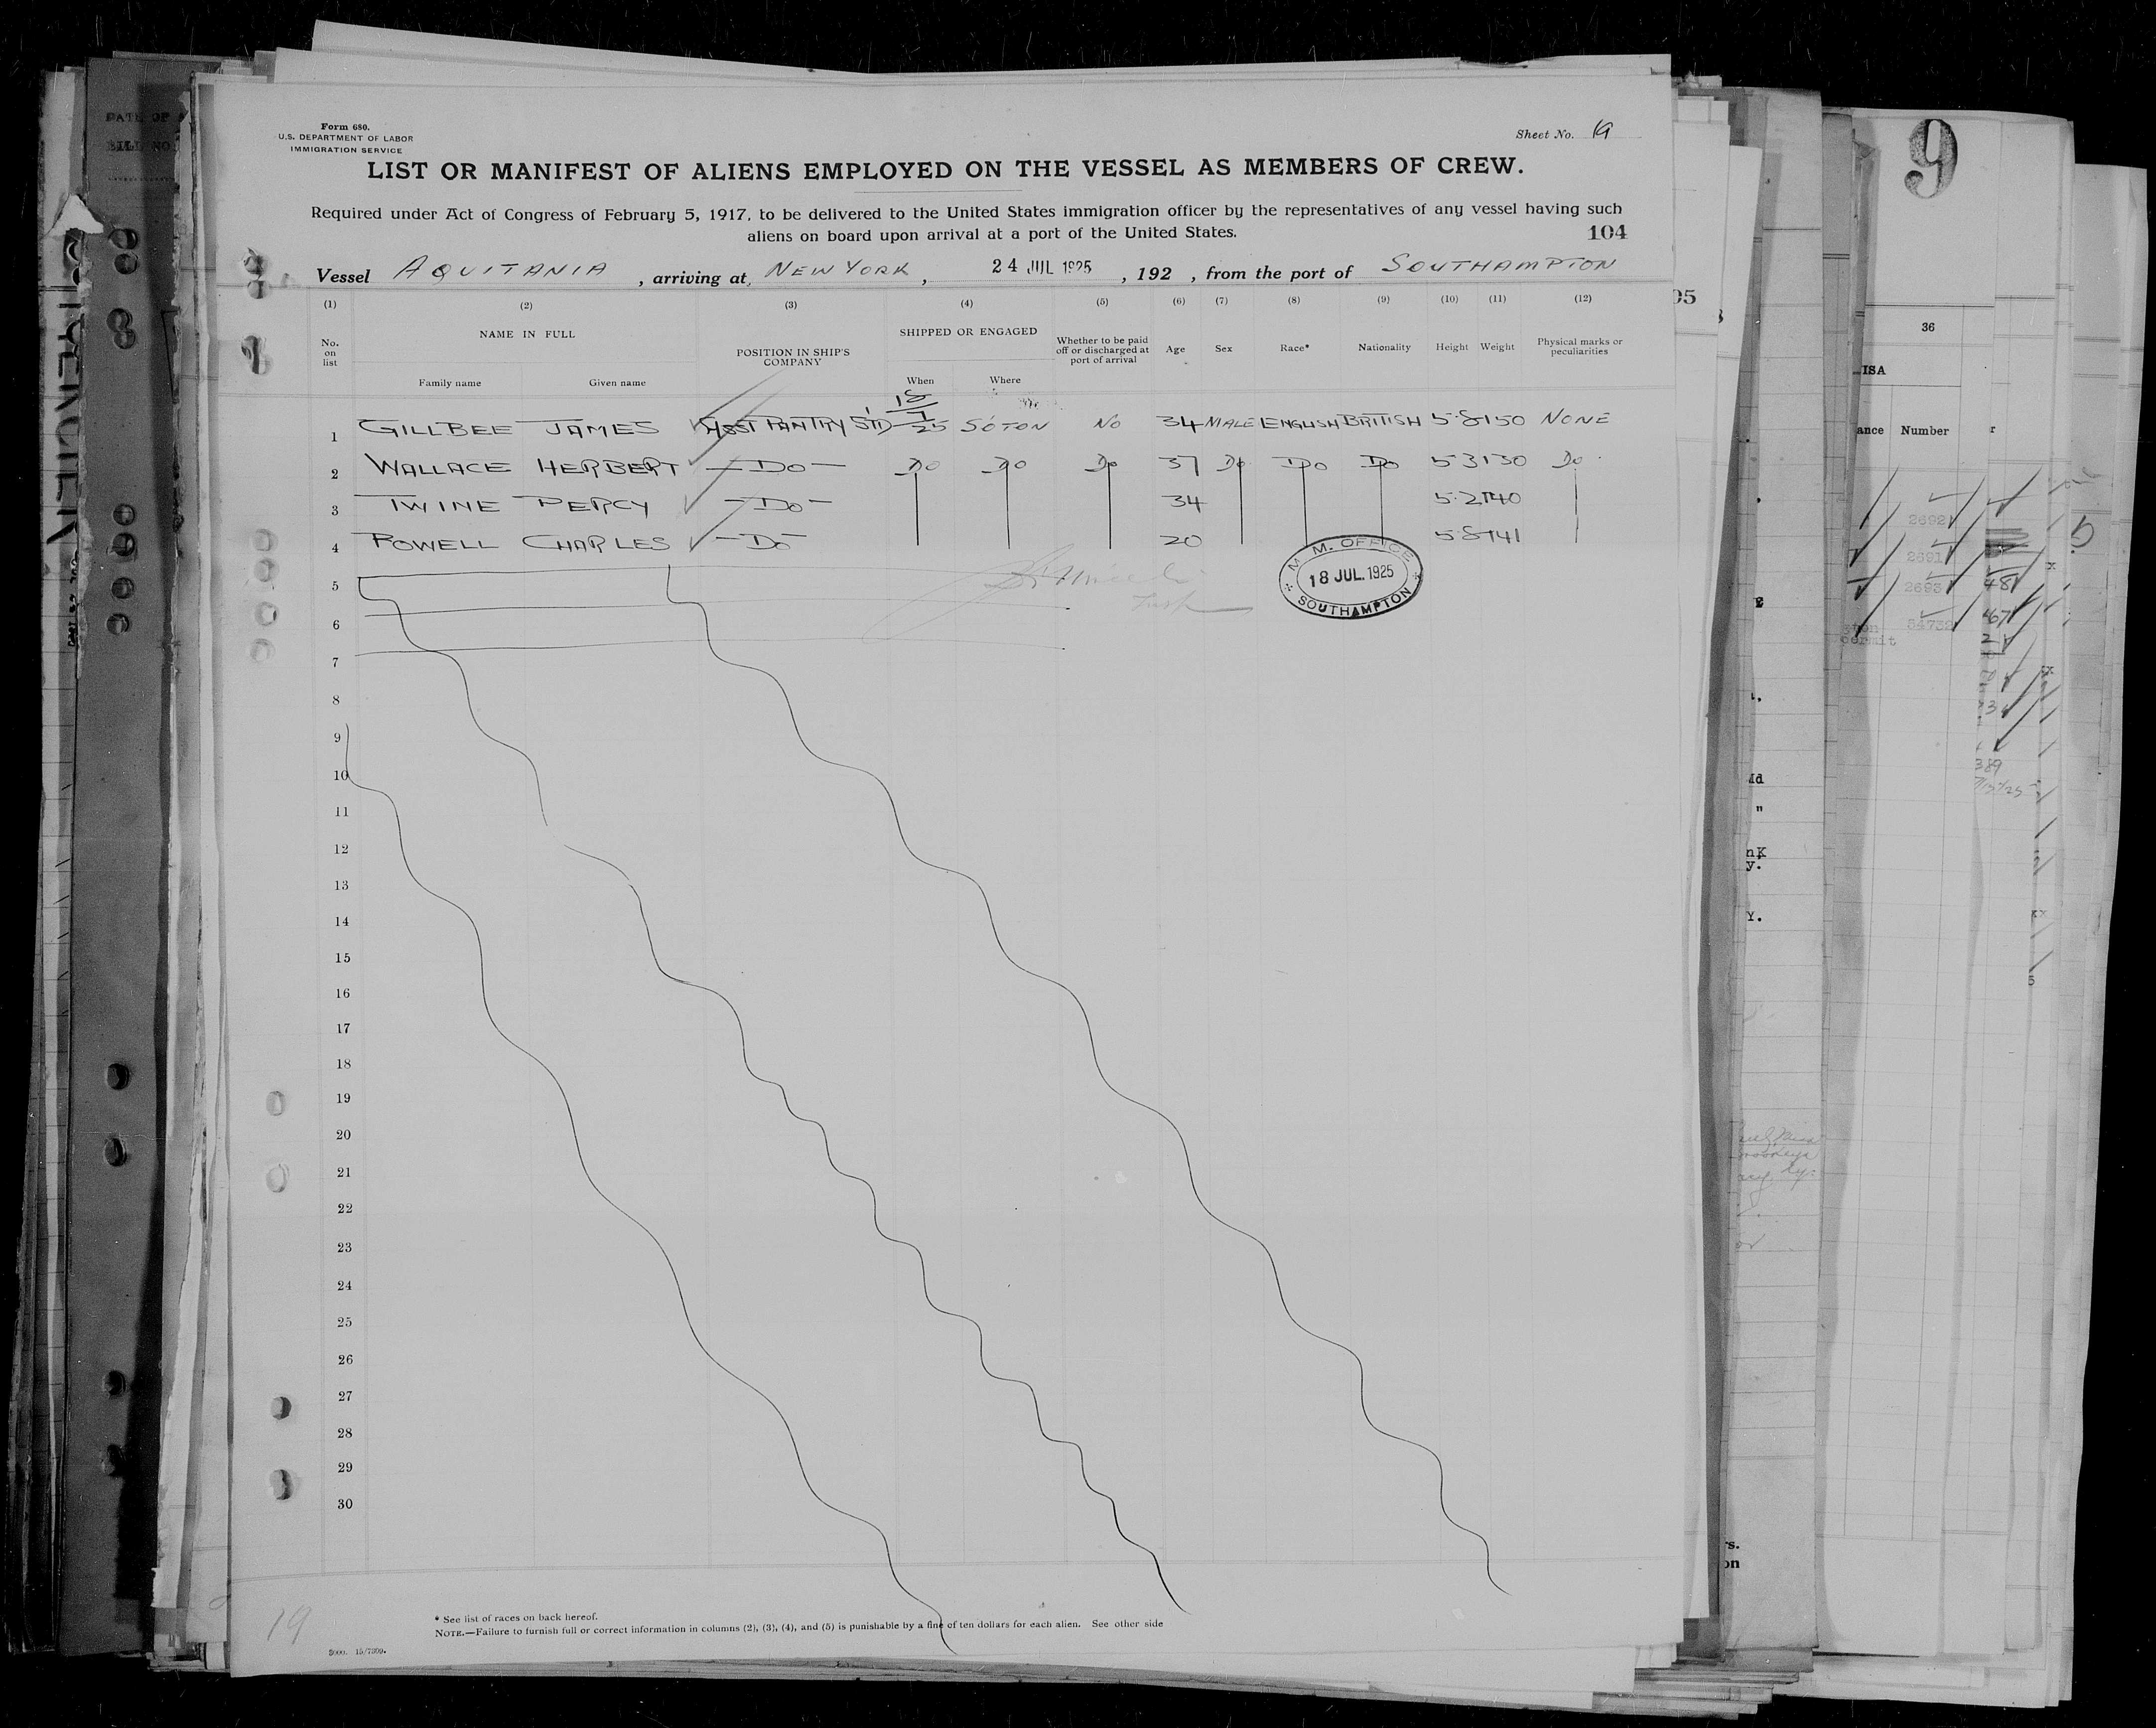 Form 680.
U.S. DEPARTMENT OF LABOR
IMMIGRATION SERVICE
Sheet No. 19
LIST OR MANIFEST OF ALIENS EMPLOYED ON THE VESSEL AS MEMBERS OF CREW.
Required under Act of Congress of February 5, 1917, to be delivered to the United States immigration officer by the representatives of any vessel having such
aliens on board upon arrival at a port of the United States.
104
Vessel AQUITANIA, arriving at NEW YORK, 24 JUL 1925, 192 , from the port of SOUTHAMPTON
(1) (2) (3) (4) (5) (6) (7) (8) (9) (10) (11) (12)
No. on list NAME IN FULL POSITION IN SHIP'S COMPANY SHIPPED OR ENGAGED Whether to be paid off or discharged at port of arrival Age Sex Race* Nationality Height Weight Physical marks or peculiarities
Family name Given name When Where
1 GILLBEE JAMES ASST PANTRY STD 18/7 25 SOTON NO 34 MALE ENGLISH BRITISH 5·8 150 NONE
2 WALLACE HERBERT — DO — DO DO DO 37 DO DO DO 5 3 130 DO
3 TWINE PERCY — DO — 34 5·2 140
4 POWELL CHARLES — DO — 20 5·8 141
M. M. OFFICE
18 JUL. 1925
SOUTHAMPTON
5
6
7
8
9
10
11
12
13
14
15
16
17
18
19
20
21
22
23
24
25
26
27
28
29
30
* See list of races on back hereof.
NOTE.—Failure to furnish full or correct information in columns (2), (3), (4), and (5) is punishable by a fine of ten dollars for each alien. See other side
19
9
36
ISA
ance Number
2692
2691
2693
54732
48
467
389